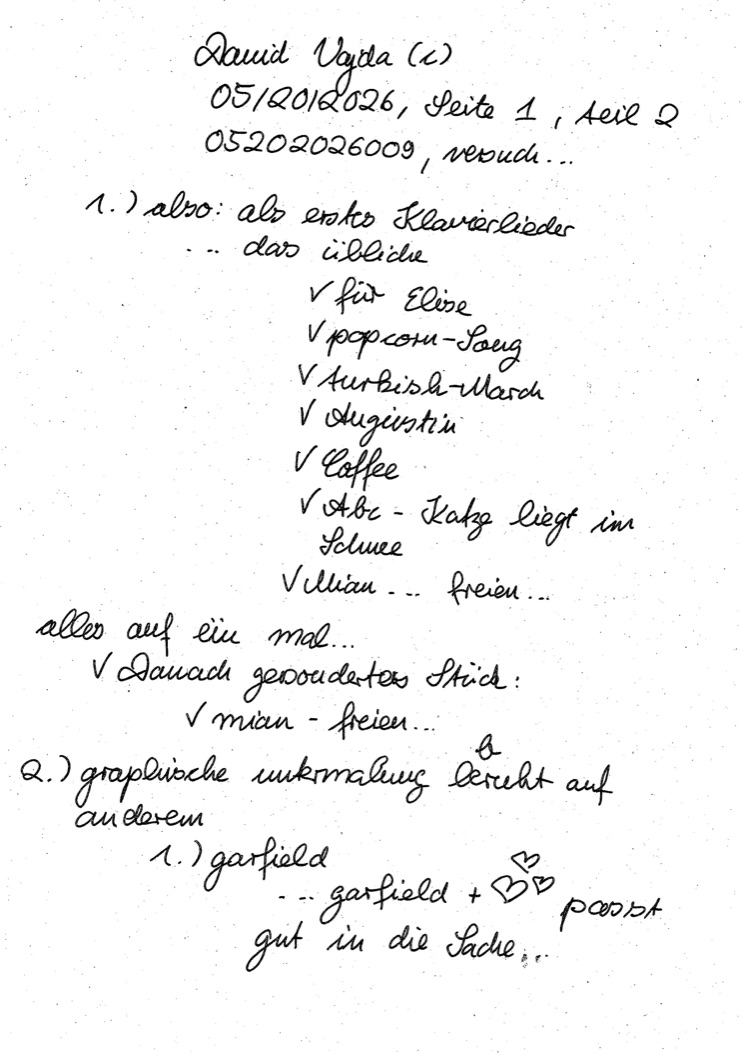 David Vajda (c)
05/20/2026, Seite 1, teil 2
05202026009, versuch...
1.) also: als erstes Klavierlieder
... das übliche
√ für Elise
√ popcorn-Song
√ turkish-March
√ Augustin
√ Coffee
√ Abc - Katze liegt im
Schnee
√ Mian ... freien...
alles auf ein mal...
√ Danach gesondertes Stück:
√ mian - freien...
2.) graphische untermalung beruht auf
anderem
1.) garfield
... garfield + ♡♡♡ passt
gut in die Sache...